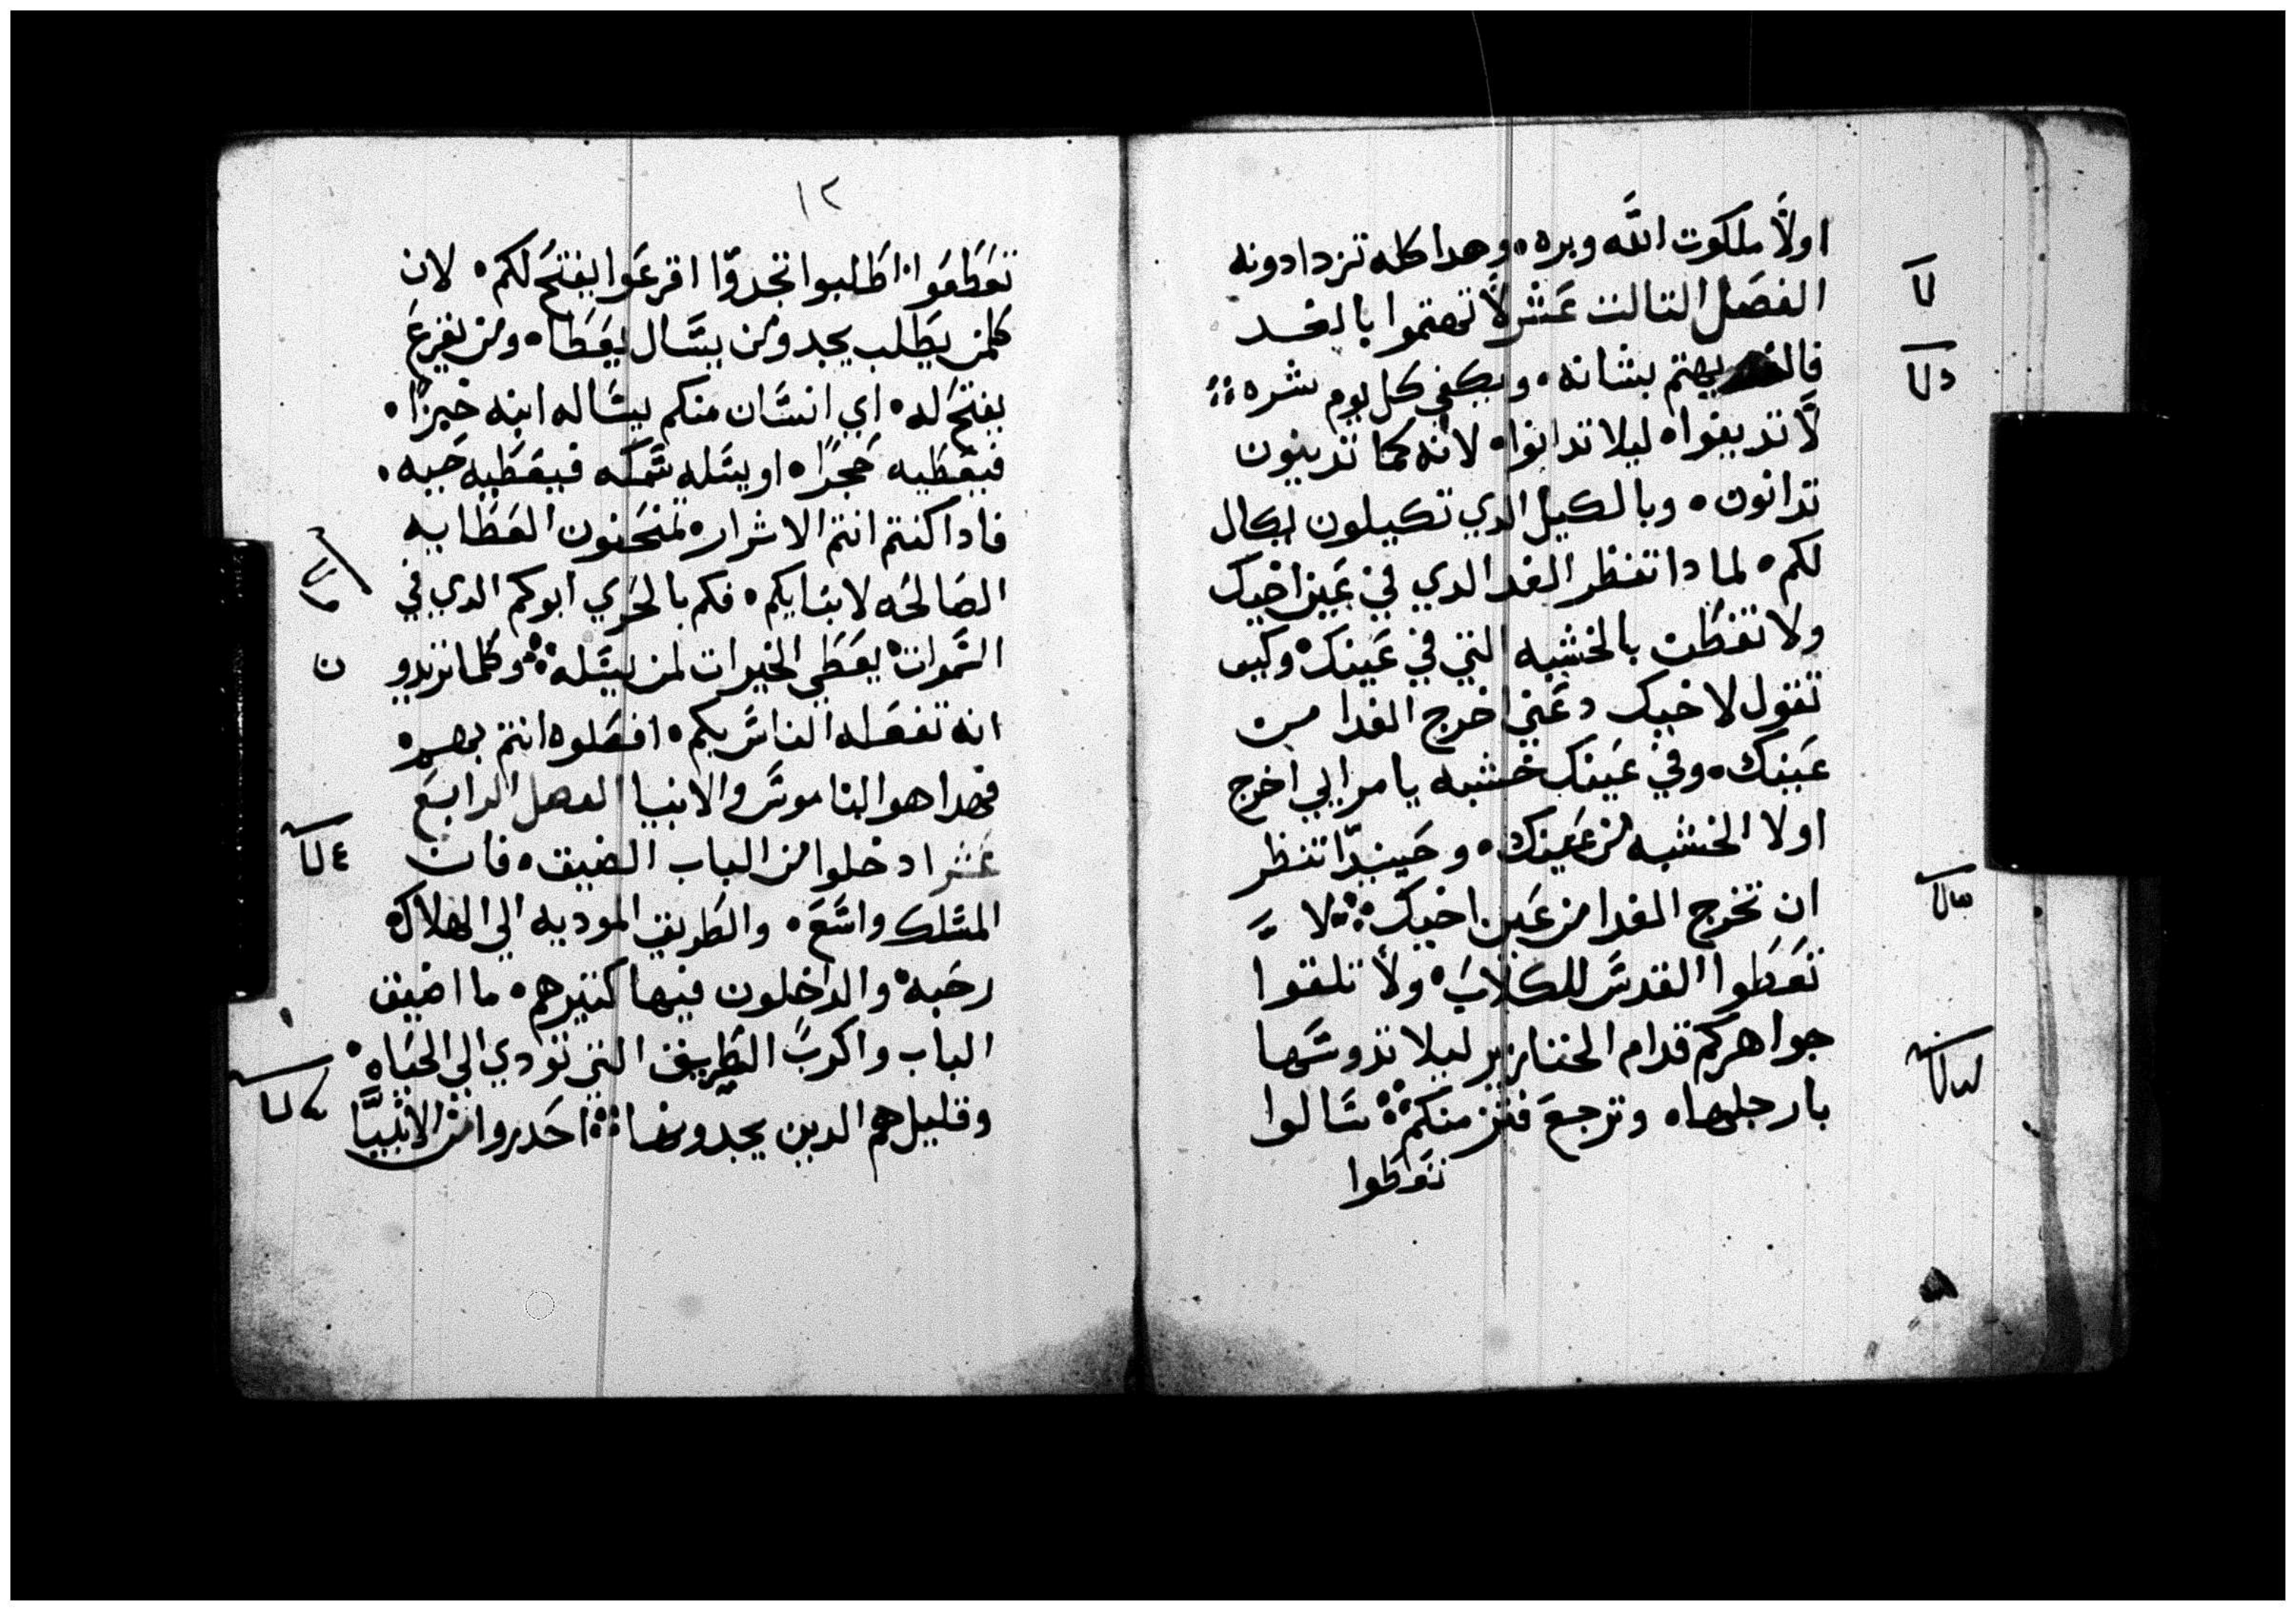 اولاً ملكوت الله وبره ٥ وهدا كله تزدادونه
الفصل التالت عشر لا تهتموا بالغد
يهتم بشانه ٥ ويكفي كل يوم شره
لا تدينوا ٥ ليلا تدانوا ٥ لانه كما تدينون
تدانون ٥ وبالكيل الدي تكيلون يكال
لكم ٥ لما دا تنظر القدا الدي في عين اخيك
ولا تفطن بالخشبه التي في عينك ٥ وكيف
تقول لاخيك دعني اخرج القدا من
عينك ٥ وفي عينك خشبه يا مرايي اخرج
اولا الخشبه من عينك ٥ وحينيدا تنظر
ان تخرج القدا من عين اخيك لا
تعطوا القدس للكلاب ٥ ولا تلقوا
جواهركم قدام الخنازير ليلا تدوسها
بارجلها ٥ وترجع فتز منكم سالوا
تعطوا
١٢
تعطوا ٥ اطلبوا تجدوا اقرعوا يفتح لكم ٥ لان
كلمن يطلب يجد ومن يسال يعطا ٥ ومن يقرع
يفتح له ٥ اي انسان منكم يساله ابنه خبزا ٥
فيعطيه حجرا ٥ او يسله سمكه فيعطيه حيه ٥
فادا كنتم انتم الاشرار ٥ تمنحون العطايه
الصالحه لابنايكم ٥ فكم بالحري ابوكم الدي في
السموات ٥ يعطي الخيرات لمن يسله وكلما تريدو
انه تفعله الناس بكم ٥ افعلوه انتم بهم ٥
فهدا هو الناموس والانبيا الفصل الرابع
عشر ادخلوا من الباب الضيق ٥ فان
المسلك واسع ٥ والطريق الموديه الي الهلاك ٥
رحبه ٥ والداخلون فيها كتير هم ٥ ما اضيق
الباب واكرب الطريق التي تودي الي الحياه ٥
وقليل هم الدين يجدونها احدروا من الانبيا